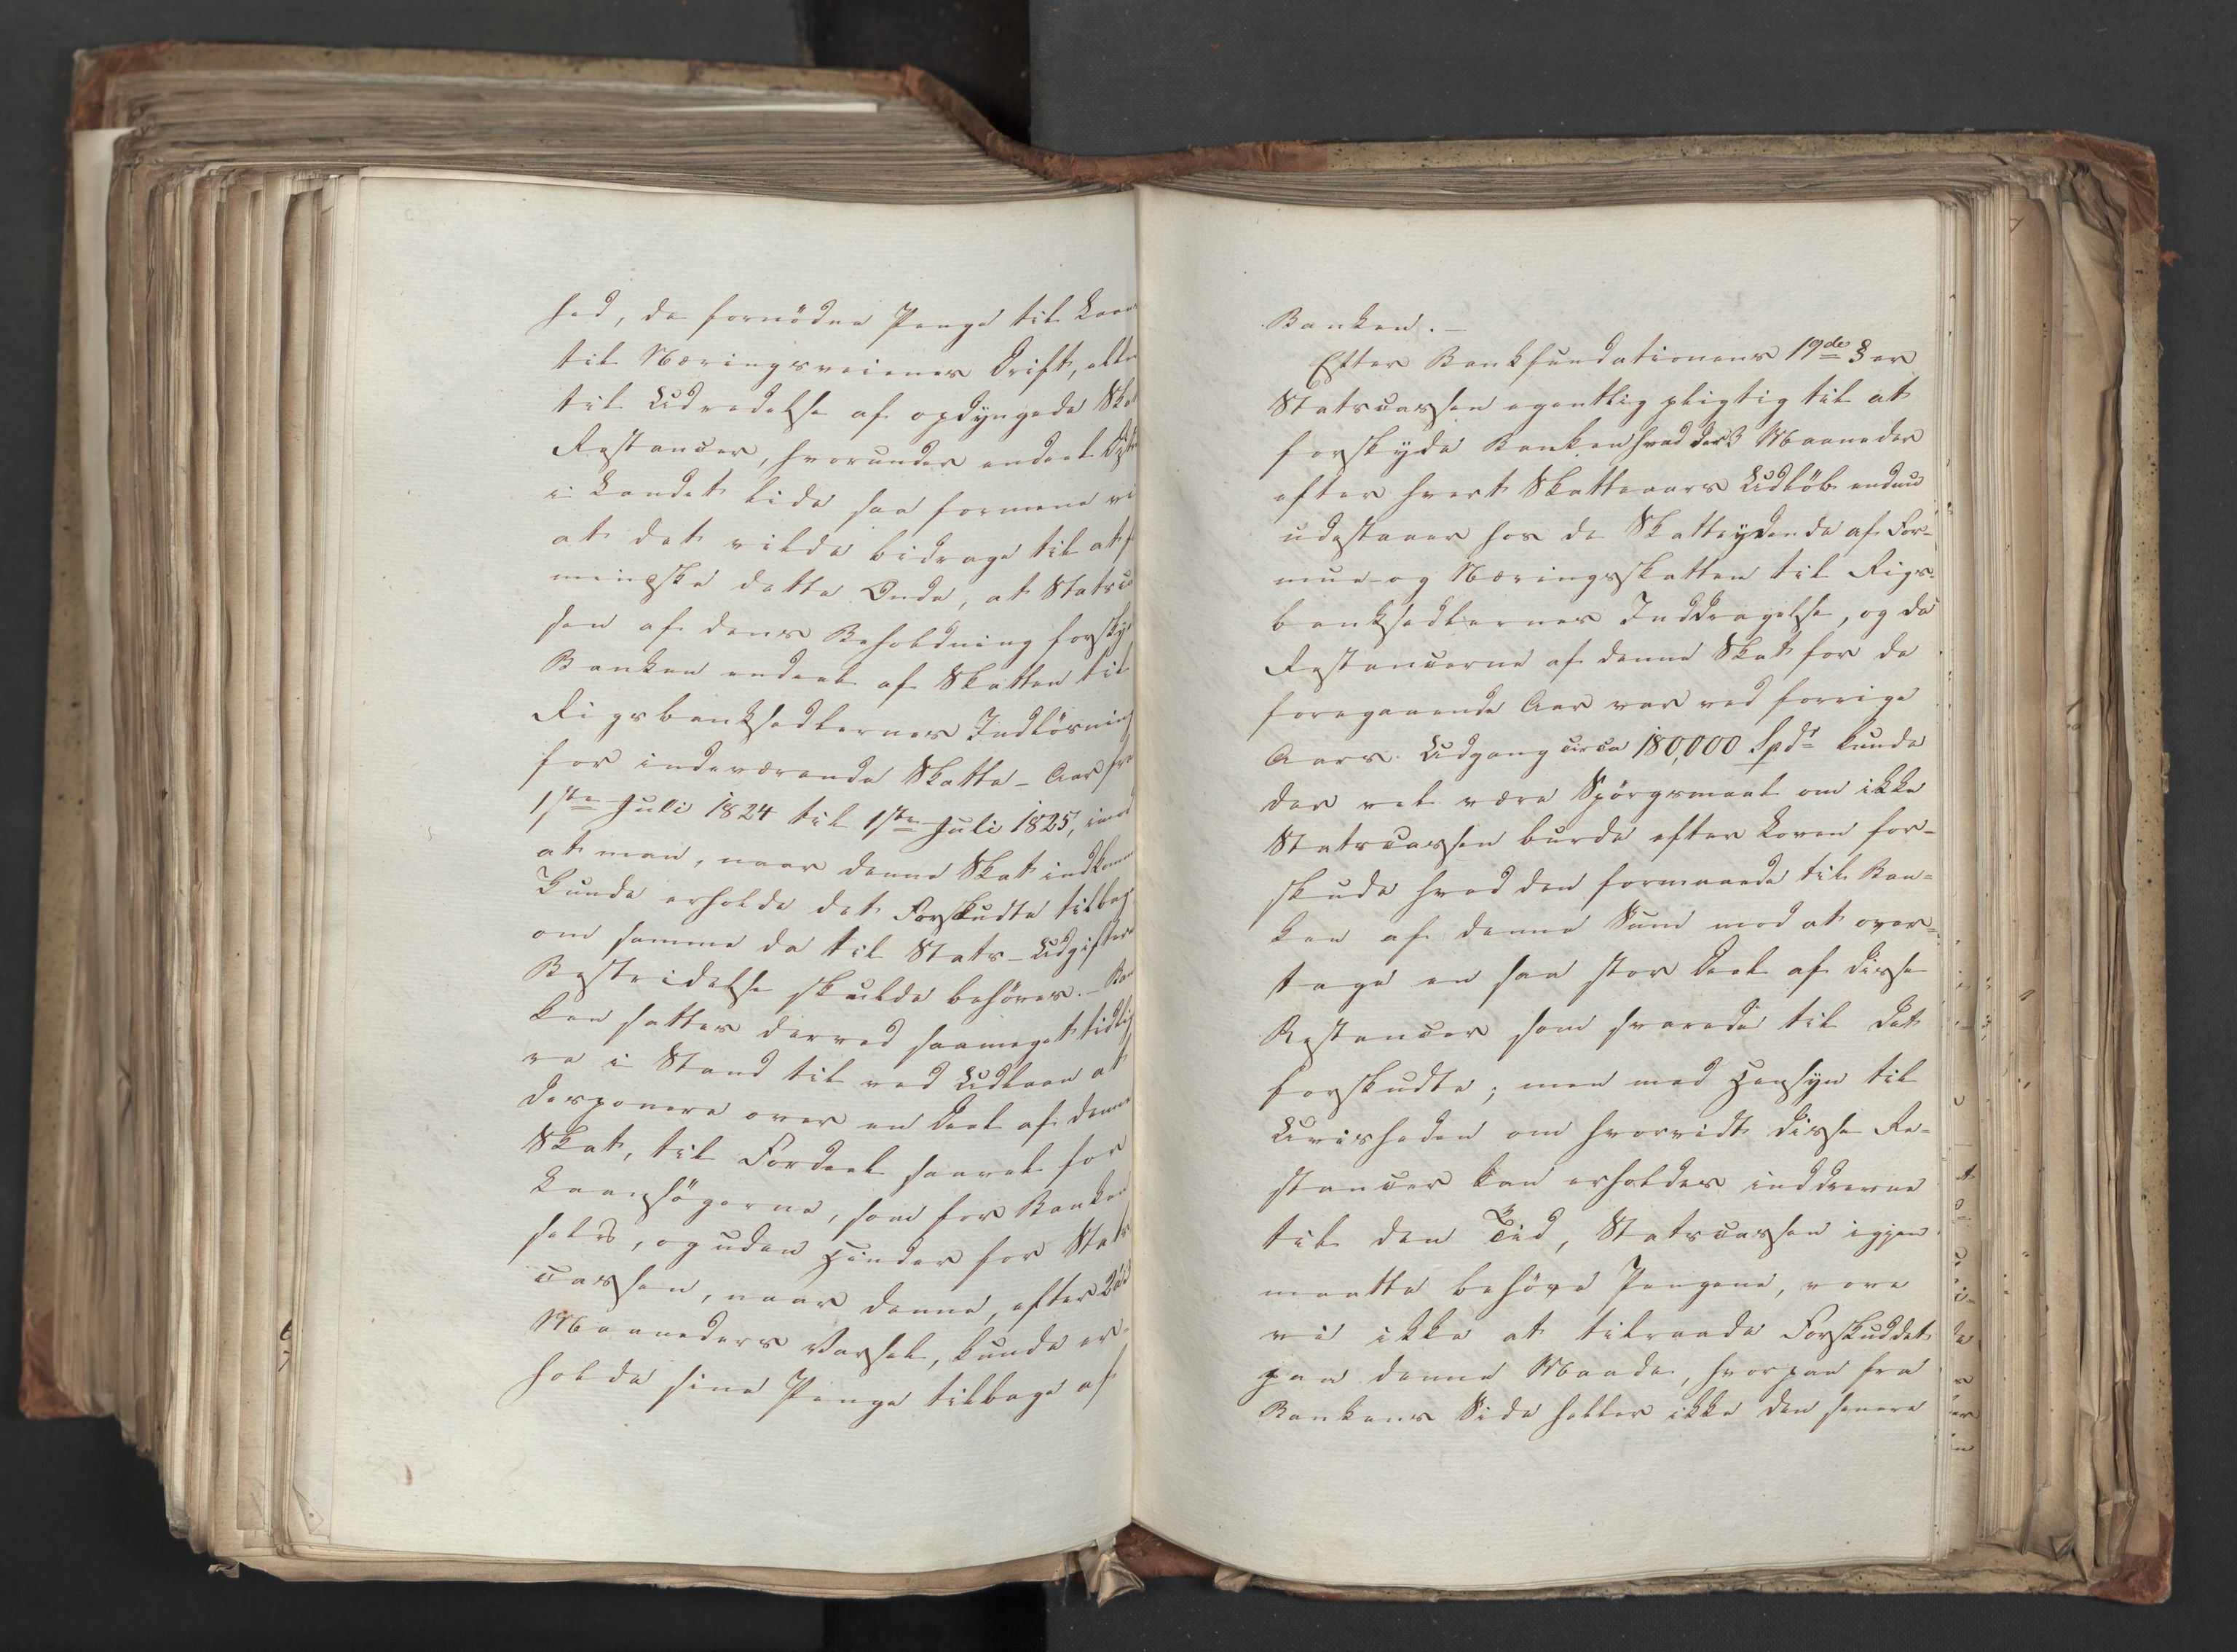 hed, de fornödne Penge til Laan
til Næringsveienes Drift, eller
til Udredelse af opdyngede Skat
Restancer, hvorunder endeel
i Landet lide saa formene vi
at det vilde bidrage til at
mindske dette Onde, at Statscas
sen af dens Beholdning forskjød
Banken endeel af Skatten til
Rigsbanksedlernes Indlösning
for indeværende Skatte-Aar fra
1ste Juli 1824 til 1ste Juli 1825, imod
at man, naar denne Skat indkom
kunde erholde det Forskudte tilbage
om samme da til Stats-Udgifters
Bestridelse skulde behöves. – Ban
ken sættes derved saameget tidlig
re i Stand til ved Udlaan at
disponere over en Deel af denne
Skat, til Fordeel saavel for
Laansögerne, som for Banken
selv, og uden Hinder for Stats
cassen, naar denne, efter 2 à 3
Maaneders Varsel, kunde er-
holde sine Penge tilbage af
Banken. –
Efter Bankfundationens 19de § er
Statscassen egentlig pligtig til at
forskyde Banken hvad der 3 Maaneder
efter hvert Skatteaars Udlöb endnu
udestaaer hos de Skatteydende af For-
mue- og Næringsskatten til Rigs-
banksedlernes Inddragelse, og da
Restancerne af denne Skat for de
foregaaende Aar var ved forrige
Aars Udgang circa 180,000 Spdr kunde
der vel være Spörgsmaal om ikke
Statscassen burde efter Loven for-
skude hvad den formaaede til Ban-
ken af denne Sum mod at over-
tage en saa stor Deel af disse
Restancer som svarede til det
forskudte; men med Hensyn til
Uvisheden om hvorvidt disse Re-
stancer kan erholdes inddrevne
til den Tid, Statscassen igjen
maatte behöve Pengene, vove
vi ikke at tilraade Forskuddet
paa denne Maade, hvorpaa fra
Bankens Side heller ikke den senere